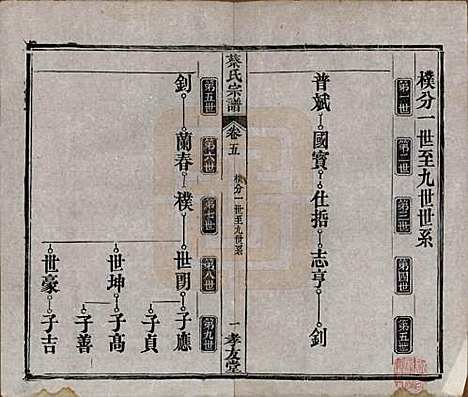 樸分一世至九世世系
第一世
第二世
第三世
第四世
第五世
普斌
國寶
仕指
志亨
釗
蔡氏宗譜
卷五
樸分一世至九世系
一
孝友堂
第五世
第六世
第七世
第八世
第九世
釗
蘭春
樸
世明
子應
子貞
世坤
子高
子善
世豪
子吉